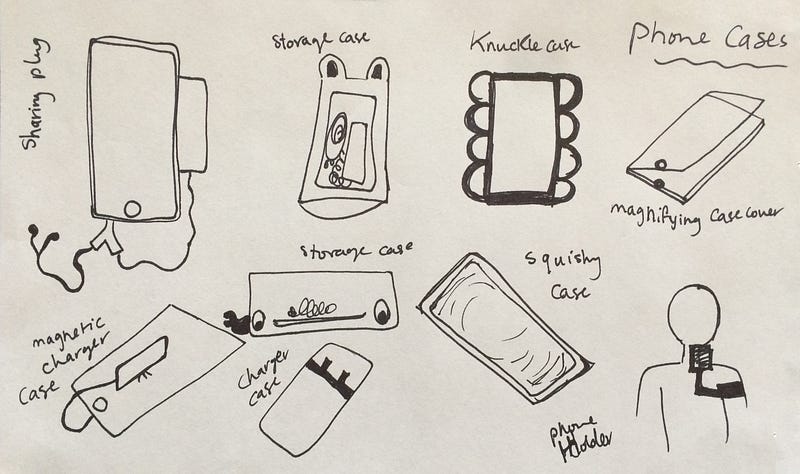 Phone Cases
Sharing plug
Storage case
Knuckle case
magnifying case cover
Storage case
Squishy
Case
magnetic
charger
Case
charger
case
phone
Holder